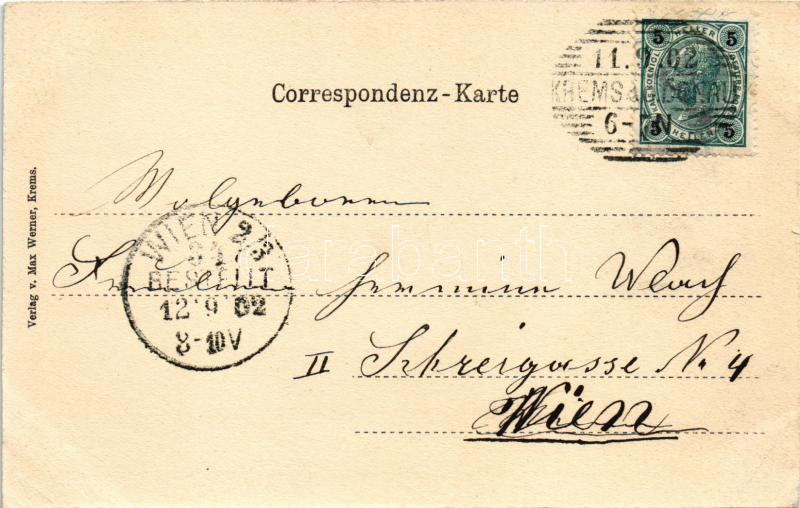 11.9.02
KREMS A.D. DONAU
6- N
5 HELLER 5
5 HELLER 5
Correspondenz-Karte
Wolgeboren
WIEN 2/3
BESTELLT
12 9 02
8-10V
Fräulein Hermine Wlach
II Schreigasse Nr 4
Wien
Verlag v. Max Werner, Krems.
darabanth